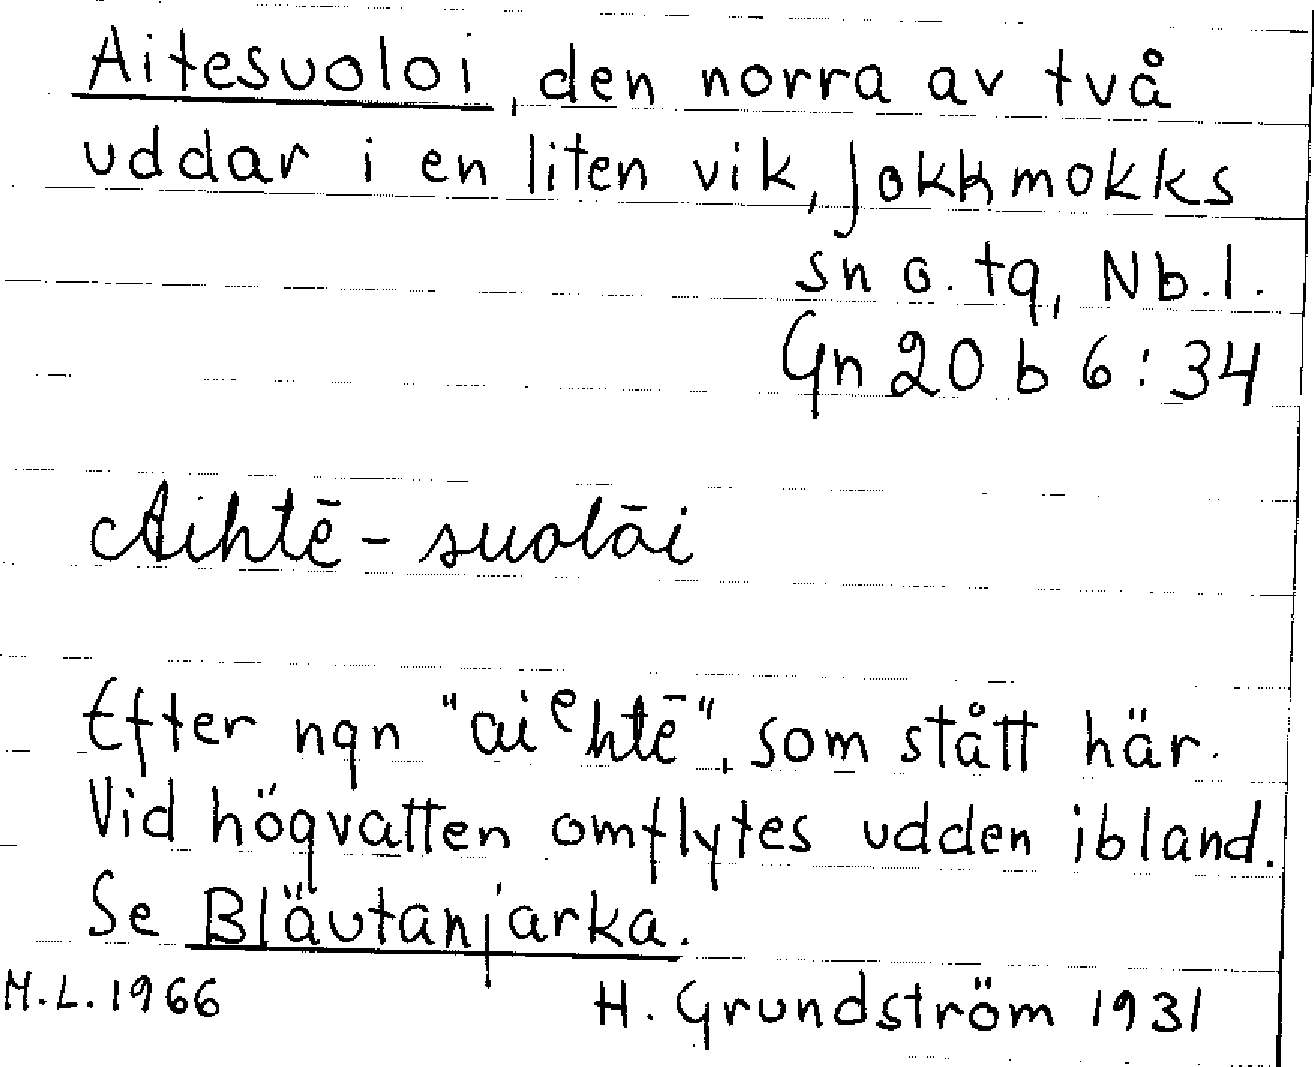 Aitesuoloi, den norra av två
uddar i en liten vik, Jokkmokks
sn o. tg, Nb.l.
Gn 20 b 6:34
Aihtē-suolāi
Efter ngn "aiᵉhtē", som stått här.
Vid högvatten omflytes udden ibland.
Se Bläutanjarka.
M.L. 1966 H. Grundström 1931